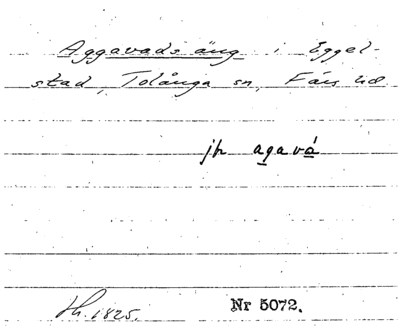 Aggavads äng i Eggel-
stad, Tolånga sn, Färs hd
jfr agavá
Nr 5072.